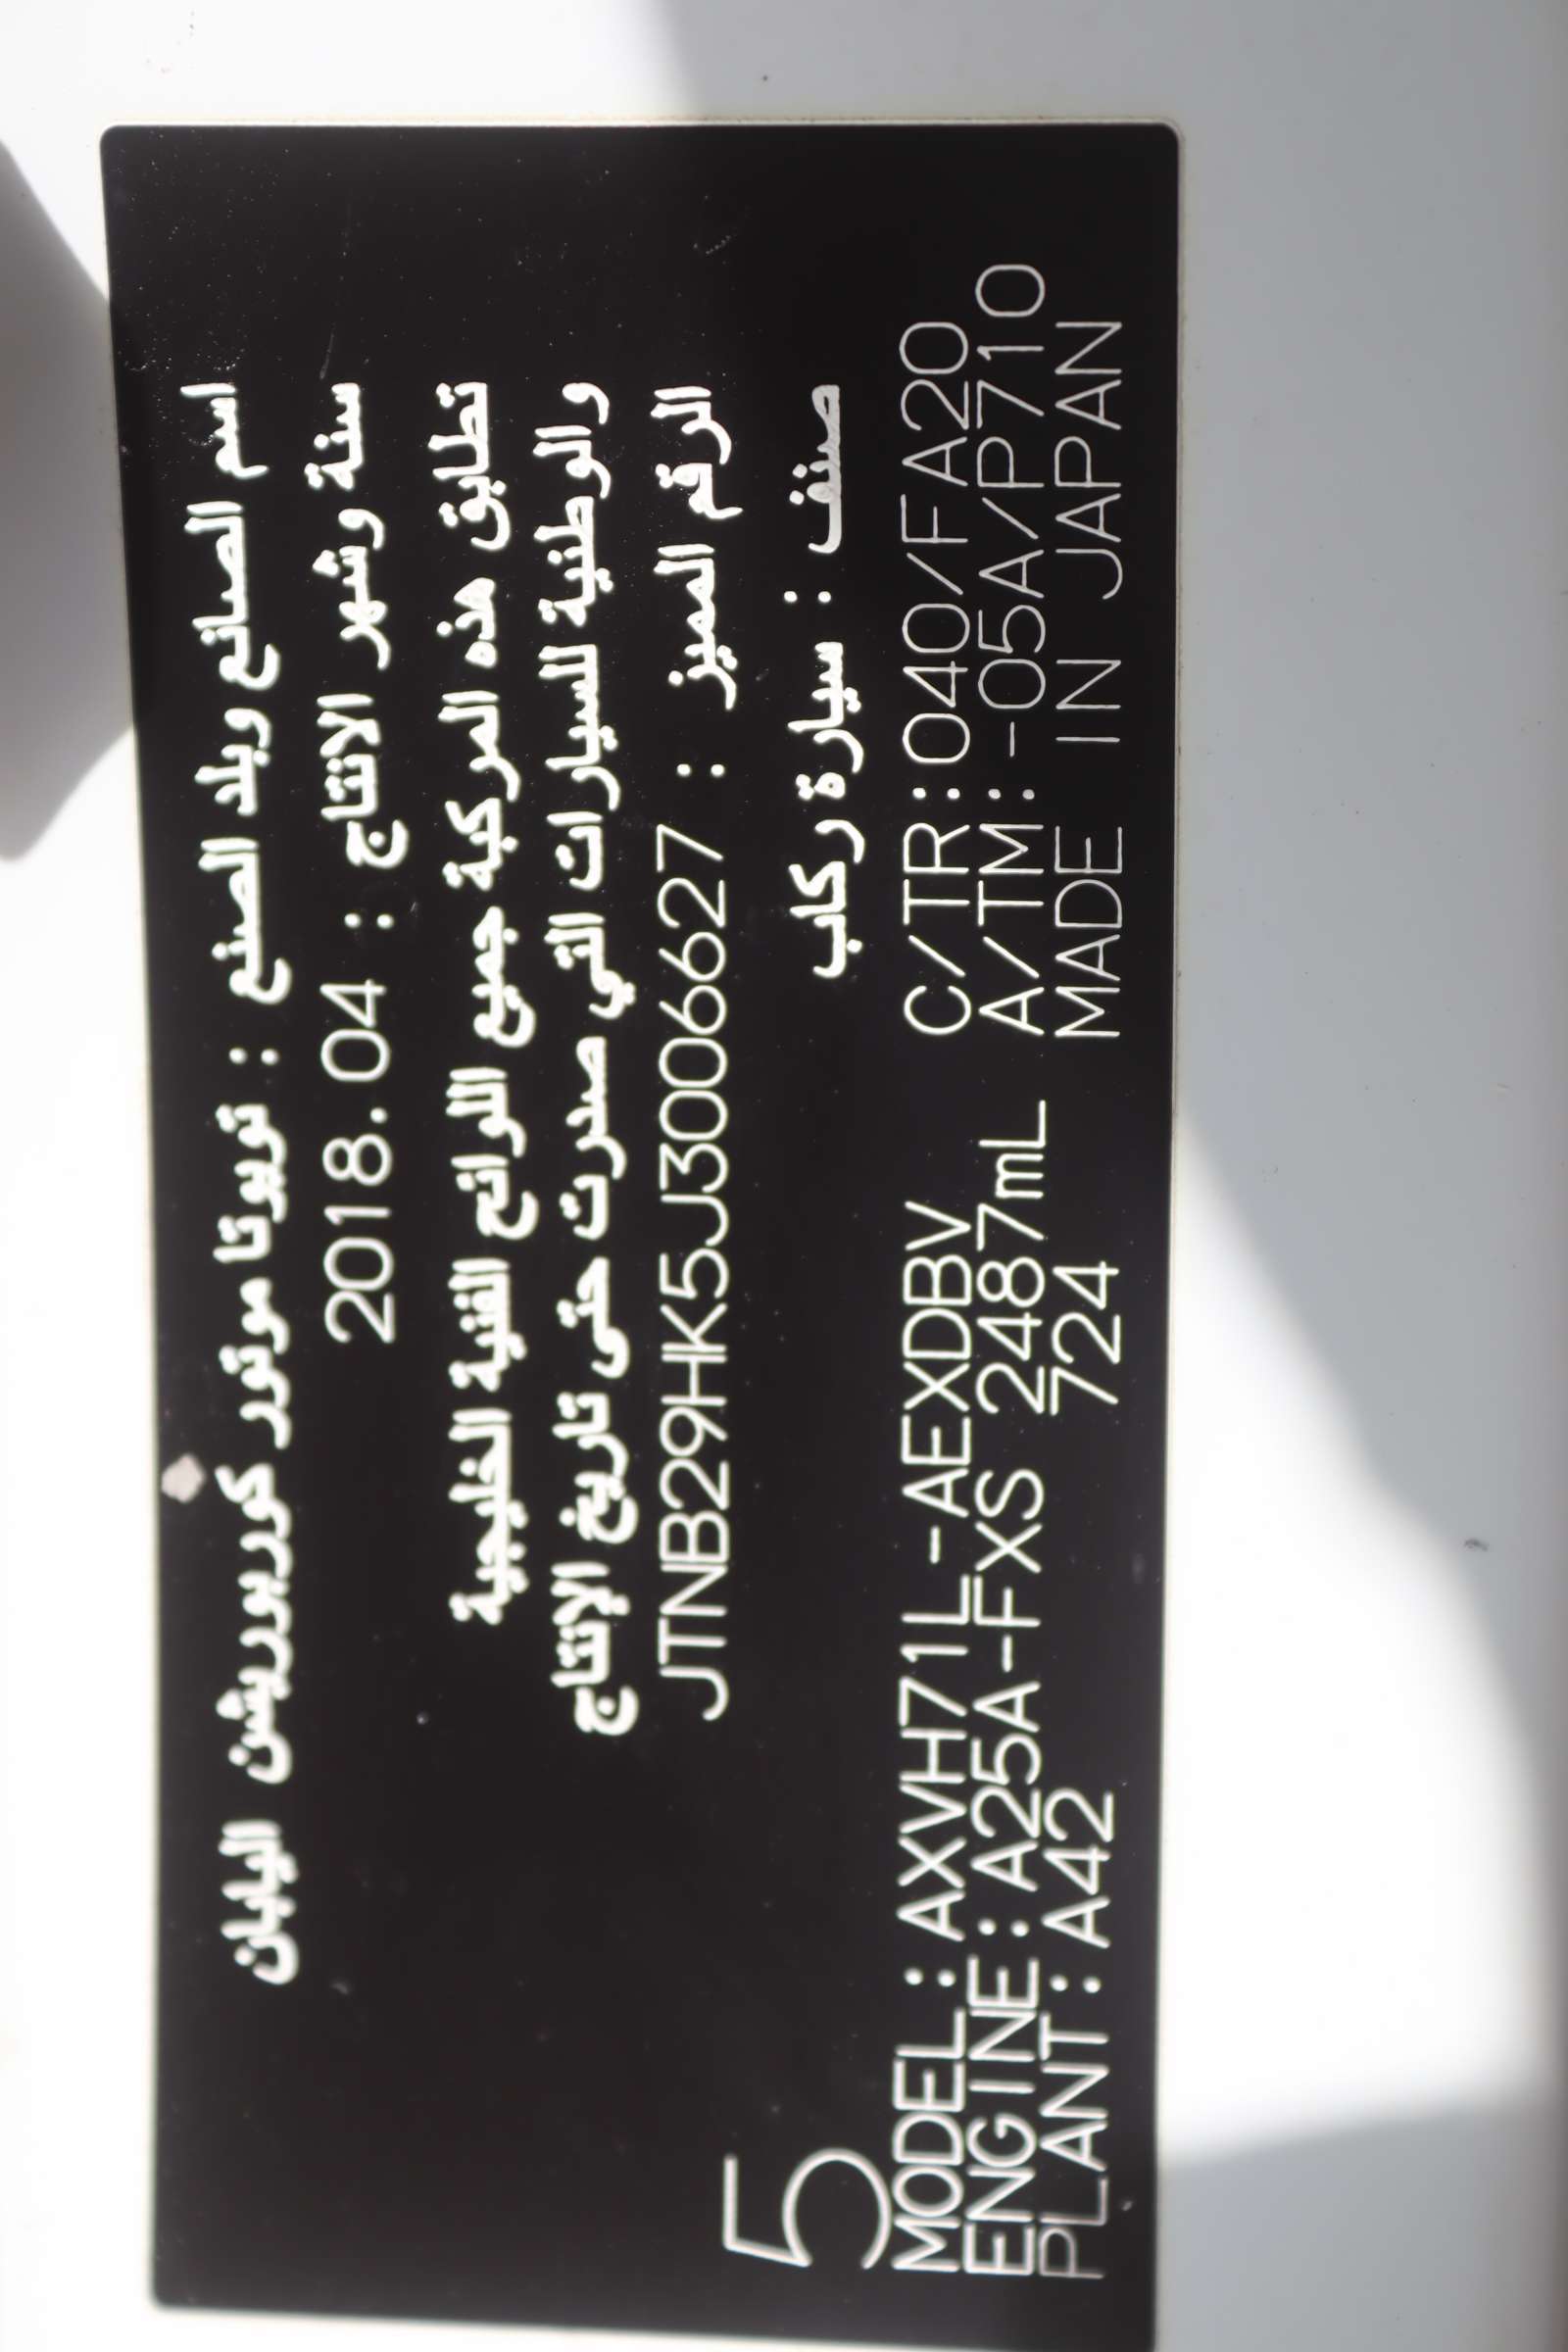 اسم الصانع وبلد الصنع : تويوتا موتور كوربوريشن اليابان
سنة وشهر الانتاج : 2018.04
تطابق هذه المركبة جميع اللوائح الفنية الخليجية
والوطنية للسيارات التي صدرت حتى تاريخ الإنتاج
الرقم المميز : JTNB29HK5J3006627
صنف : سيارة ركاب
5
MODEL:AXVH71L-AEXDBV C/TR:040/FA20
ENGINE:A25A-FXS 2487mL A/TM:-05A/P710
PLANT:A42 724 MADE IN JAPAN